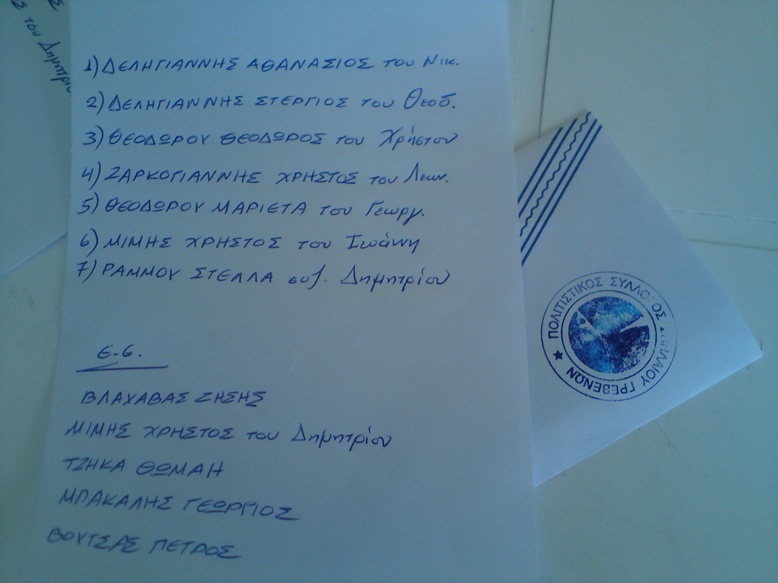 του Δημητρίου
1) ΔΕΛΗΓΙΑΝΝΗΣ ΑΘΑΝΑΣΙΟΣ του Νικ.
2) ΔΕΛΗΓΙΑΝΝΗΣ ΣΤΕΡΓΙΟΣ του Θεοδ.
3) ΘΕΟΔΩΡΟΥ ΘΕΟΔΩΡΟΣ του Χρήστου
4) ΖΑΡΚΟΓΙΑΝΝΗΣ ΧΡΗΣΤΟΣ του Λεων.
5) ΘΕΟΔΩΡΟΥ ΜΑΡΙΕΤΑ του Γεωργ.
6) ΜΙΜΗΣ ΧΡΗΣΤΟΣ του Ιωάννη
7) ΡΑΜΜΟΥ ΣΤΕΛΛΑ συζ. Δημητρίου
Ε.Ε.
ΒΛΑΧΑΒΑΣ ΖΗΣΗΣ
ΜΙΜΗΣ ΧΡΗΣΤΟΣ του Δημητρίου
ΤΖΗΚΑ ΘΩΜΑΗ
ΜΠΑΚΑΛΗΣ ΓΕΩΡΓΙΟΣ
ΒΟΥΤΣΑΣ ΠΕΤΡΟΣ
ΠΟΛΙΤΙΣΤΙΚΟΣ ΣΥΛΛΟΓΟΣ ΣΠΗΛΑΙΟΥ ΓΡΕΒΕΝΩΝ